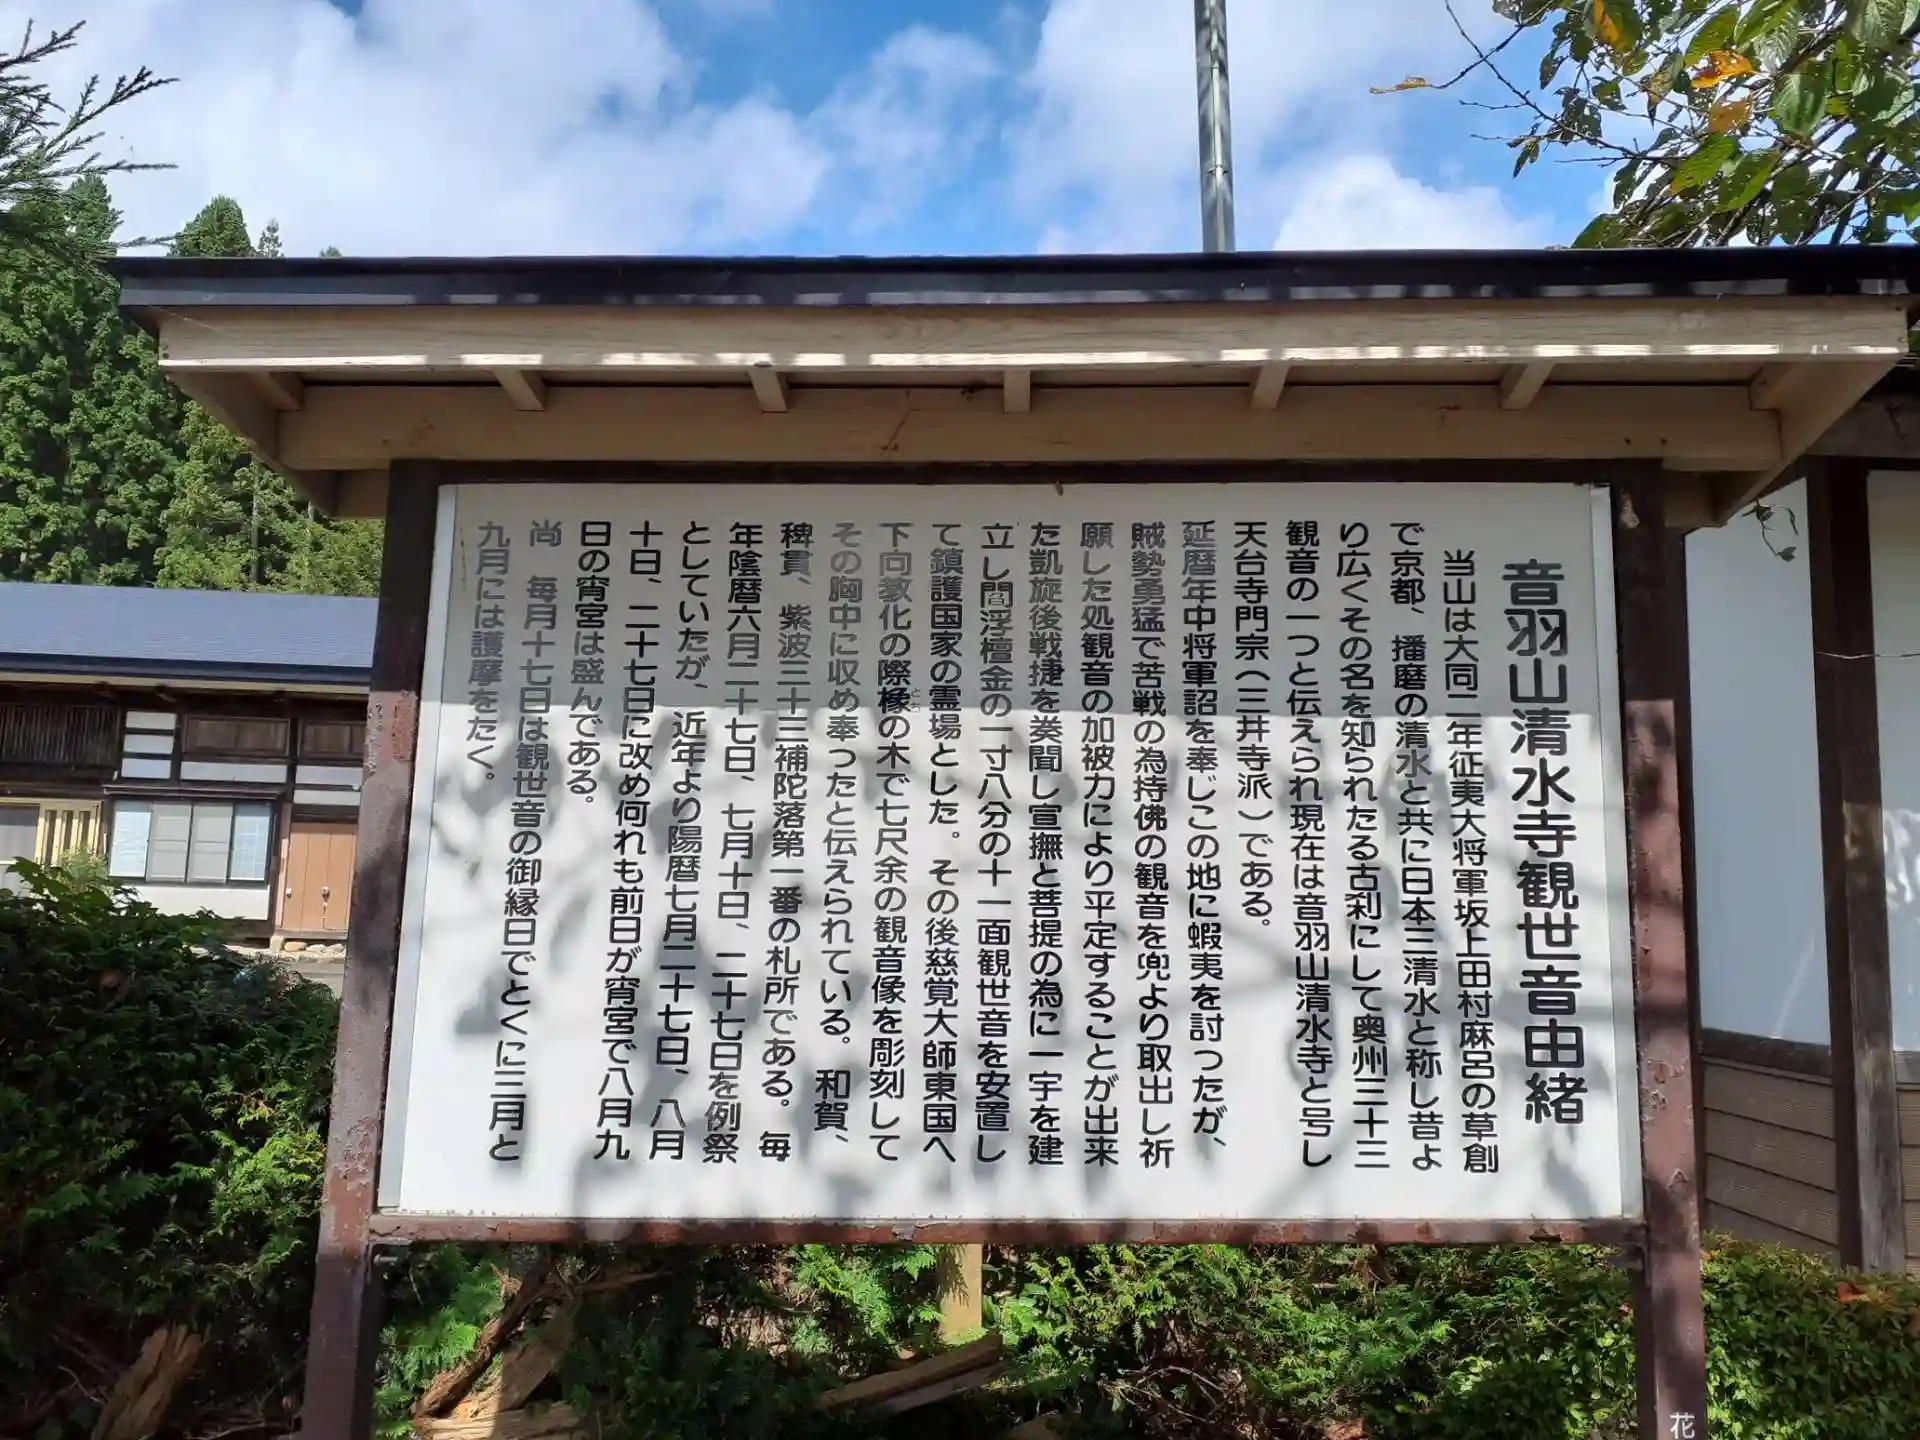 音羽山清水寺観世音由緒
当山は大同二年征夷大将軍坂上田村麻呂の草創
で京都、播磨の清水と共に日本三清水と称し昔よ
り広くその名を知られたる古刹にして奥州三十三
観音の一つと伝えられ現在は音羽山清水寺と号し
天台寺門宗(三井寺派)である。
延暦年中将軍詔を奉じこの地に蝦夷を討ったが、
賊勢勇猛で苦戦の為持佛の観音を兜より取出し祈
願した処観音の加被力により平定することが出来
た凱旋後戦捷を奏聞し宣撫と菩提の為に一宇を建
立し閻浮檀金の一寸八分の十一面観世音を安置し
て鎮護国家の霊場とした。その後慈覚大師東国へ
下向教化の際橡とちの木で七尺余の観音像を彫刻して
その胸中に収め奉ったと伝えられている。和賀、
稗貫、紫波三十三補陀落第一番の札所である。毎
年陰暦六月二十七日、七月十日、二十七日を例祭
としていたが、近年より陽暦七月二十七日、八月
十日、二十七日に改め何れも前日が宵宮で八月九
日の宵宮は盛んである。
尚 毎月十七日は観世音の御縁日でとくに三月と
九月には護摩をたく。
花